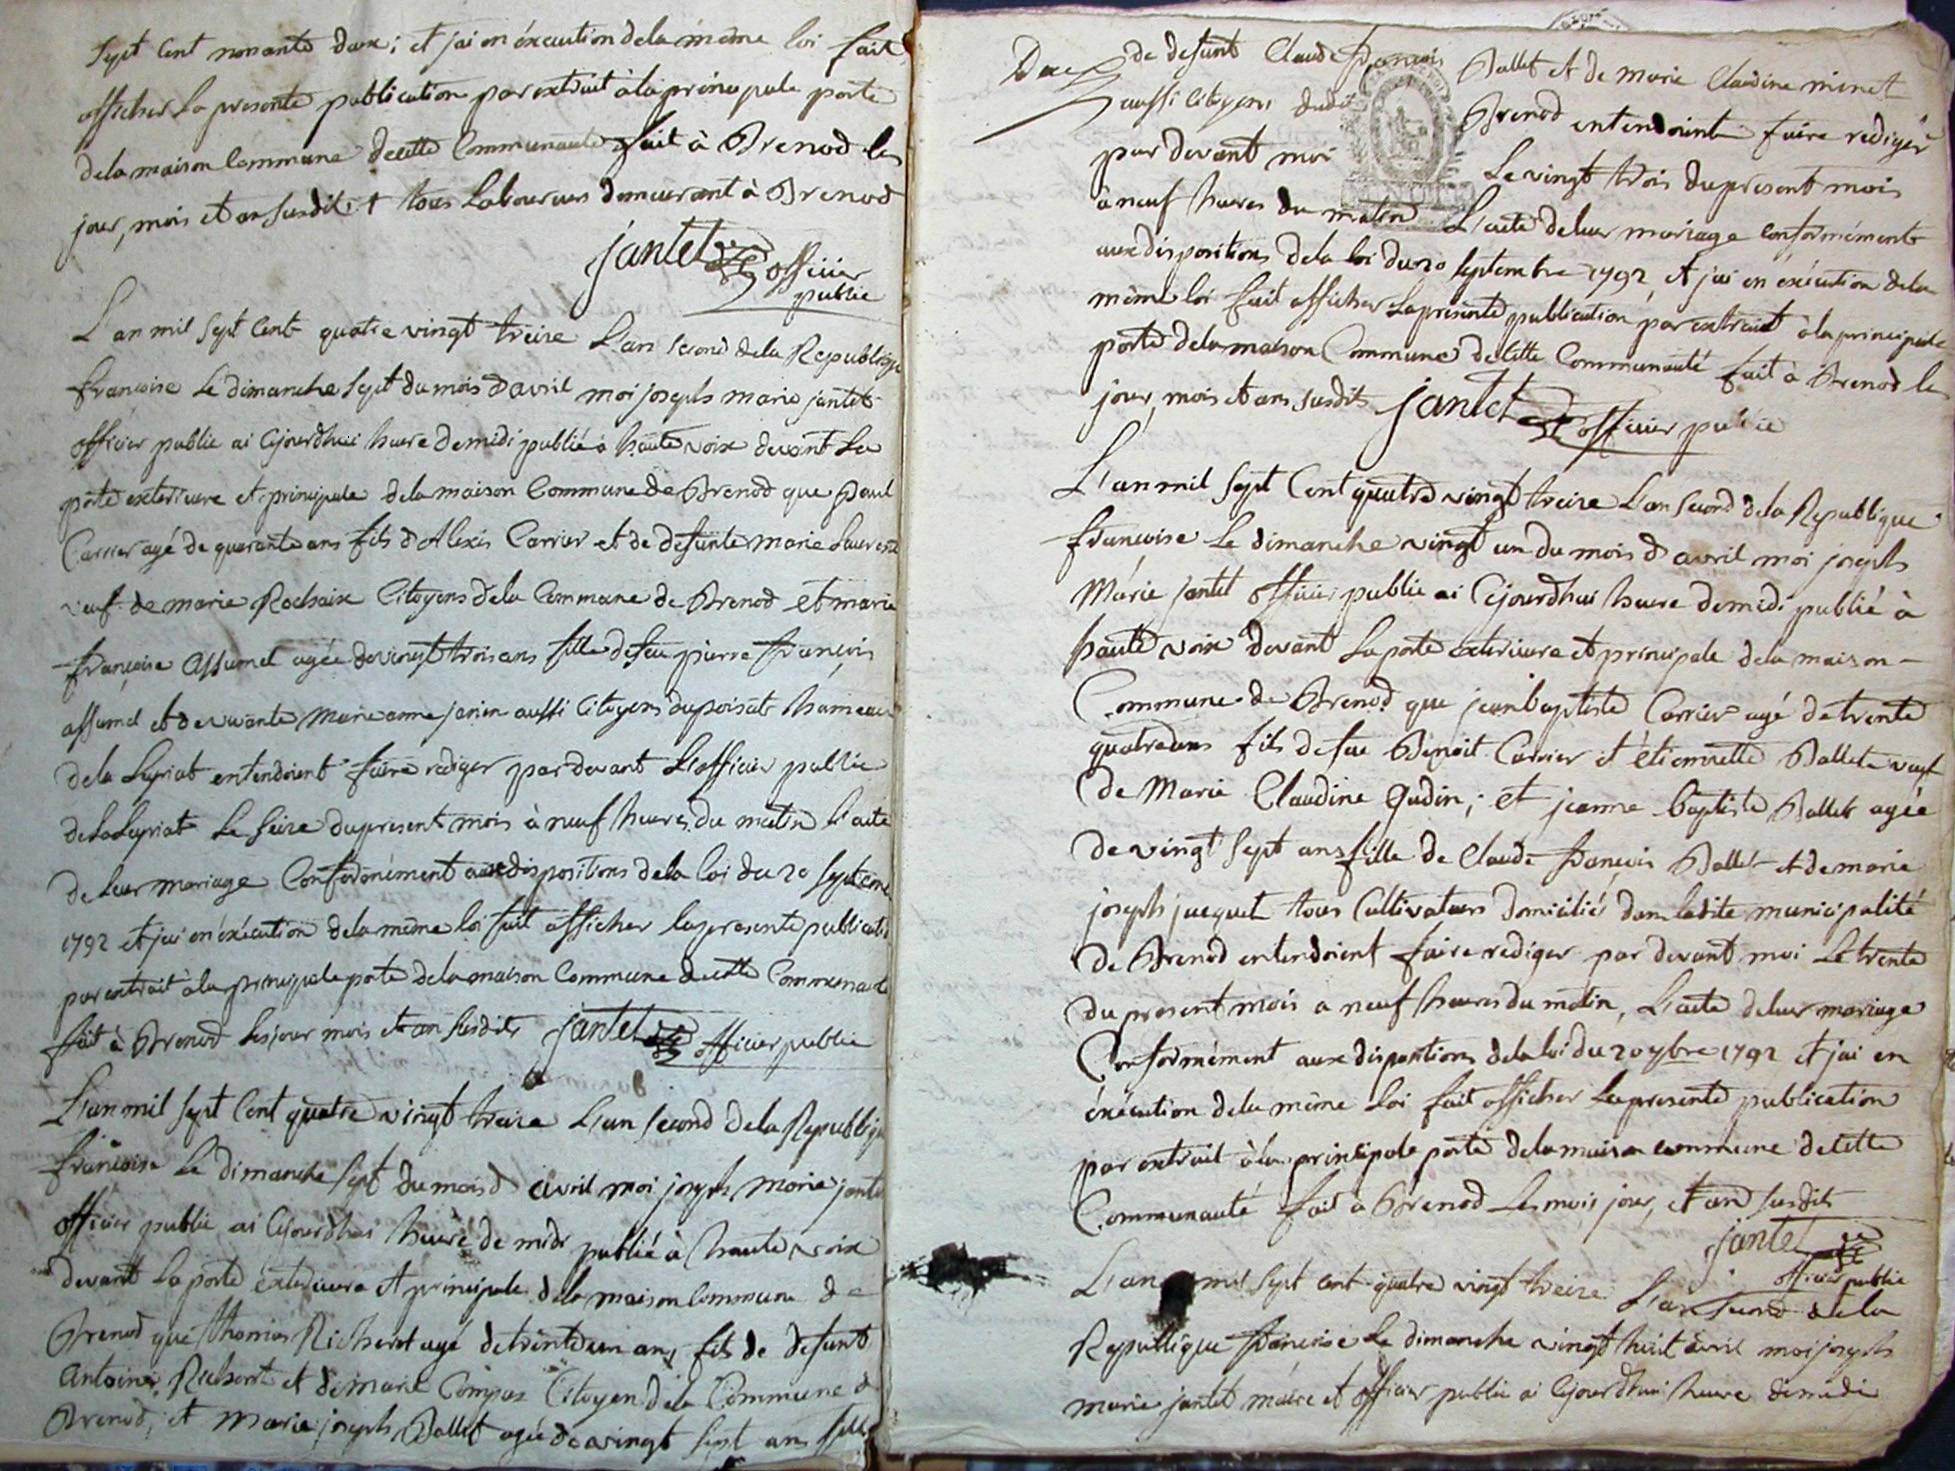 sept cent nonante deux; et jai en éxécution dela même loi fait
afficher la presente publication par extrait à la principale porte
de la maison Commune de cette Communauté fait à Brenod les
jour, mois et an susdits + tous Laboureurs demeurant à Brenod
jantet officier
public
L'an mil sept Cent quatre vingt treize L'an second dela Republique
françoise Le dimanche sept du mois d'avril moi joseph marie jantet
officier public ai Cejourdhui heure de midi publié à haute voix devant La
porte exterieure et principale dela maison Commune de Brenod que Paul
Carrier agé de quarante ans fils d'Alexis Carrier et de defunte marie Laurent
veuf de marie Rochaix Citoyens dela Commune de Brenod et marie
françoise assumel agée de vingt trois ans fille de feu pierre françois
assumel et de vivante Marie anne janin aussi Citoyens du poisat hameau
de la Leyriat entendoient faire rediger par devant L'officier public
de La Leyriat Le seize du present mois à neuf heures du matin L'acte
de leur mariage Conformément aux dispositions de la loi du 20 septembre
1792 et jai en éxécution dela même loi fait afficher la presente publication
par extrait à la principale porte de la maison Commune de cette Communauté
fait à Brenod les jour mois et an susdits jantet officier public
L'an mil sept Cent quatre vingt treize L'an second de la Republique
françoise Le dimanche sept du mois d'avril moi joseph marie jantet
officier public ai Cejourdhui heure de midi publié à haute voix
devant La porte exterieure et principale de la maison Commune de
Brenod que thomas Richerot agé de trente un ans fils de defunt
antoine Richerot et de marie Compas Citoyen dela Commune de
Brenod, et marie joseph Ballet agée de vingt sept ans fille
Deux de defunt Claude françois Ballet et de marie Claudine minet
aussi Citoyens dudit Brenod entendoient faire rediger
par devant moi Le vingt trois du present mois
à neuf heures du matin L'acte de leur mariage conformément
aux dispositions de la loi du 20 septembre 1792, et jai en éxécution de la
même loi fait afficher la presente publication par extrait à la principale
porte de la maison Commune de cette Communauté fait à Brenod les
jour, mois et ans susdits jantet officier public
L'an mil sept Cent quatre vingt treize L'an second de la Republique
françoise Le dimanche vingt un du mois d'avril moi joseph
Marie jantet officier public ai Cejourdhui heure de midi publié à
haute voix devant La porte exterieure et principale de la maison
Commune de Brenod que jean baptiste Carrier agé de trente
quatre ans fils de feu Benoit Carrier et étiennette Ballet veuf
de Marie Claudine Gudin; et jeanne baptiste Ballet agée
de vingt sept ans fille de Claude françois Ballet et de marie
joseph jacquet tous Cultivateurs domiciliés dans ladite municipalité
de Brenod entendoient faire rediger par devant moi Le trente
du present mois a neuf heures du matin, L'acte de leur mariage
Conformément aux dispositions de la loi du 20 7bre 1792 et jai en
éxécution de la même loi fait afficher la presente publication
par extrait à la principale porte de la maison commune de cette
Communauté fait à Brenod Les mois jour, et an susdits
jantet
officier public
L'an mil sept cent quatre vingt treize L'an second de la
Republique françoise Le dimanche vingt huit avril moi joseph
marie jantet maire et officier public ai Cejourdhui heure de midi